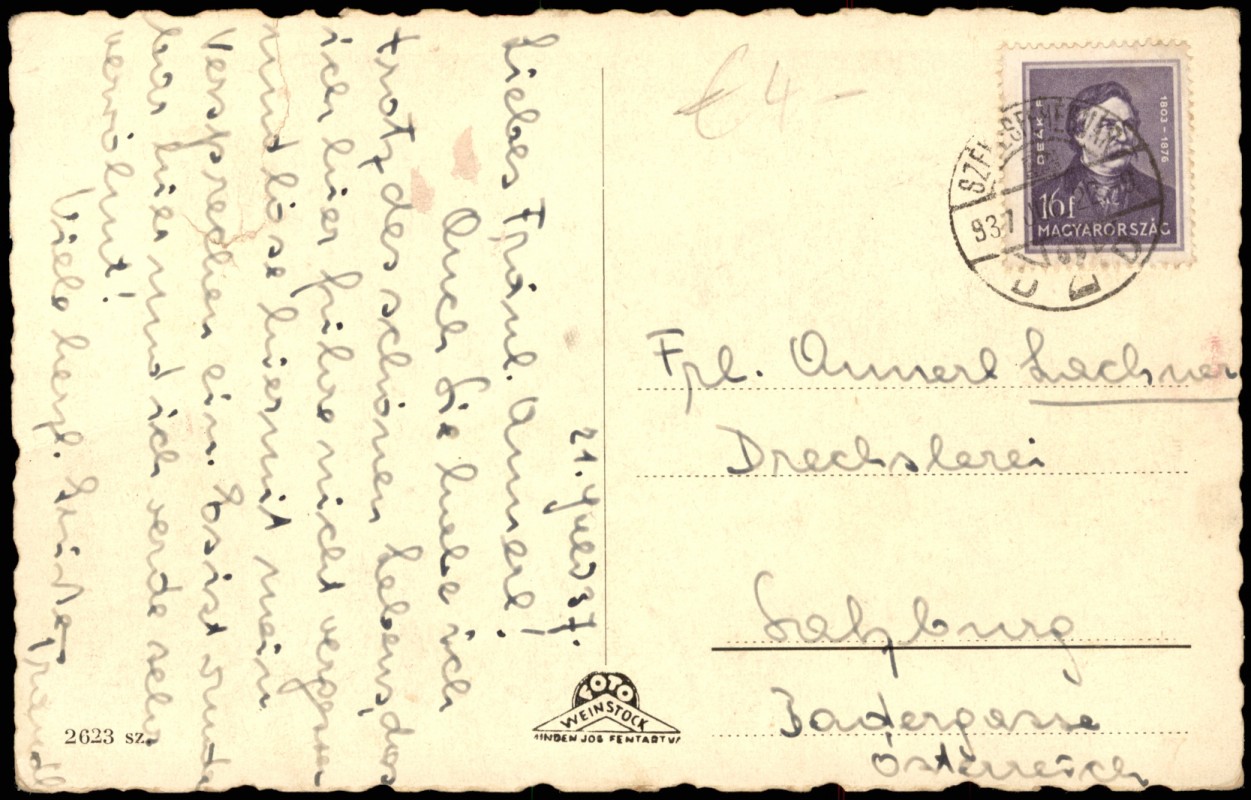 21. Juli 37.
Liebes Fräul. Annerl!
Auch Sie habe ich
trotz des schönen Lebens, das
ich hier führe nicht vergessen
und löse hiermit mein
Versprechen ein. Es ist wunder
bar hier und ich werde sehr
verwöhnt!
Viele herzl. Grüße,
€ 4 -
DEÁK F
1803-1876
16f
MAGYARORSZÁG
937
Frl. Annerl Lachner
Drechslerei
Salzburg
Badergasse
Österreich
FOTO
WEINSTOCK
MINDEN JOG FENTARTVA
2623 sz.